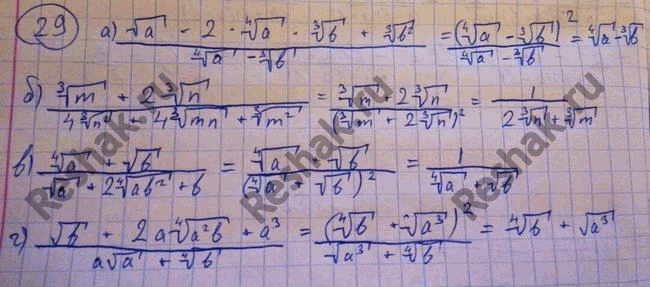 29 а) (√a - 2 · ⁴√a · ³√b + ³√b²) / (⁴√a - ³√b) = (⁴√a - ³√b)² / (⁴√a - ³√b) = ⁴√a - ³√b
б) (³√m + 2³√n) / (4³√n² + 4³√mn + ³√m²) = (³√m + 2³√n) / (³√m + 2³√n)² = 1 / (2³√n + ³√m)
в) (⁴√a + √b) / (√a + 2⁴√ab² + b) = (⁴√a + √b) / (⁴√a + √b)² = 1 / (⁴√a + √b)
г) (√b + 2a⁴√a²b + a³) / (a√a + ⁴√b) = (⁴√b + √a³)² / (√a³ + ⁴√b) = ⁴√b + √a³
Reshak.ru
Reshak.ru
Reshak.ru